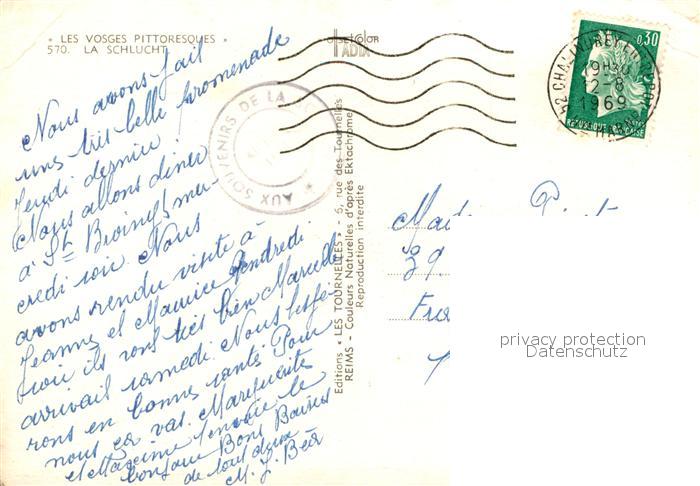 « LES VOSGES PITTORESQUES »
570. LA SCHLUCHT
OFFSET COLOR
IADIX
0,30
9H30
2-8
1969
REPUBLIQUE FRANCAISE
AUX SOUVENIRS DE LA
Nous avons fait
une très belle promenade
Jeudi dernier
Nous allons diner
à St Broing mer
credi soir Nous
avons rendu visite à
Jeanne et Maurice Vendredi
soir ils vont très bien Marcelle
arrivait samedi. Nous
rons en bonne santé Pour
nous ça va. Marguerite
et Maxime envoie le
bonjour Bons Baisers
de tout deux
M. J. Béa
Editions « LES TOURNELLES » - 6, rue des Tournelles
REIMS - Couleurs Naturelles d'après Ektachrome
Reproduction interdite
privacy protection
Datenschutz